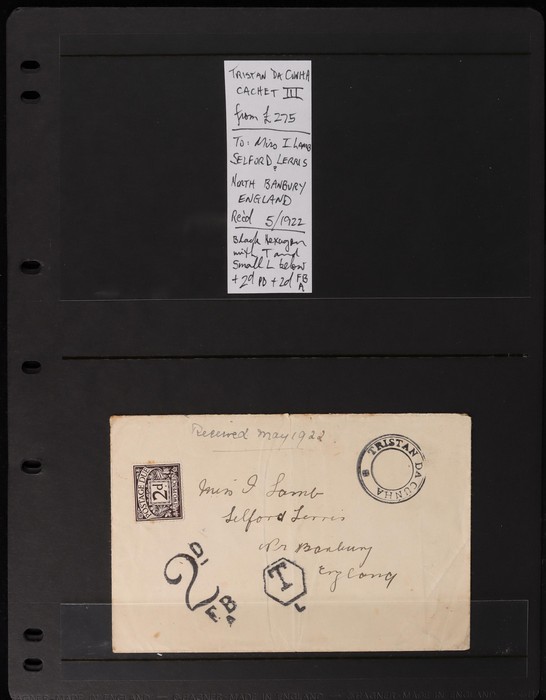 TRISTAN DA CUNHA
CACHET III
from £275
To: Miss I LAMB
SELFORD LERRIS
?
NORTH BANBURY
ENGLAND
Rec'd 5/1922
Black Hexagon
with T and
small L below
+ 2d PD + 2d FB
A
Received May 1922
TRISTAN DA CUNHA
POSTAGE DUE
2d
Miss I Lamb
Selford Lerris
Nr Banbury
England
2D.
F.B
A
T
L